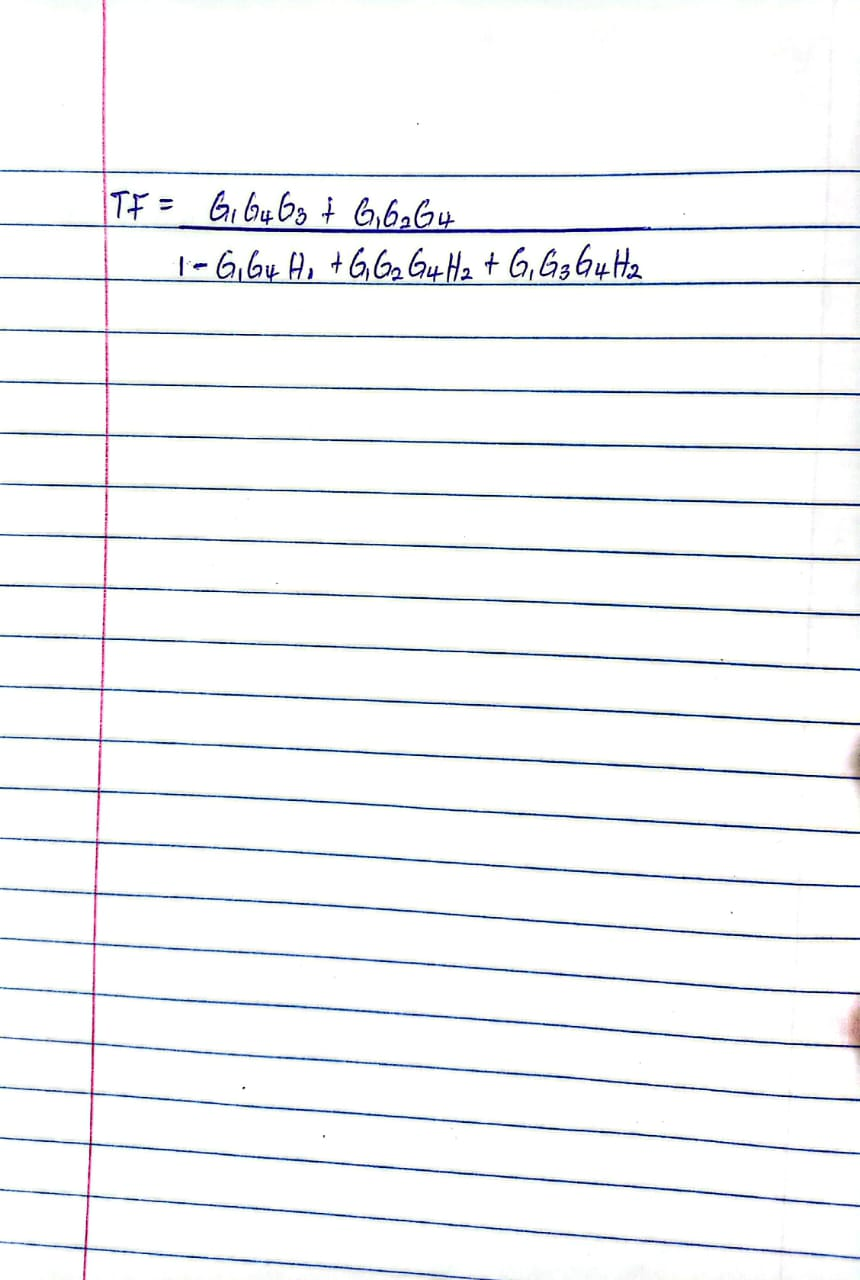 TF = G₁G₄G₃ + G₁G₂G₄
1 - G₁G₄H₁ + G₁G₂G₄H₂ + G₁G₃G₄H₂